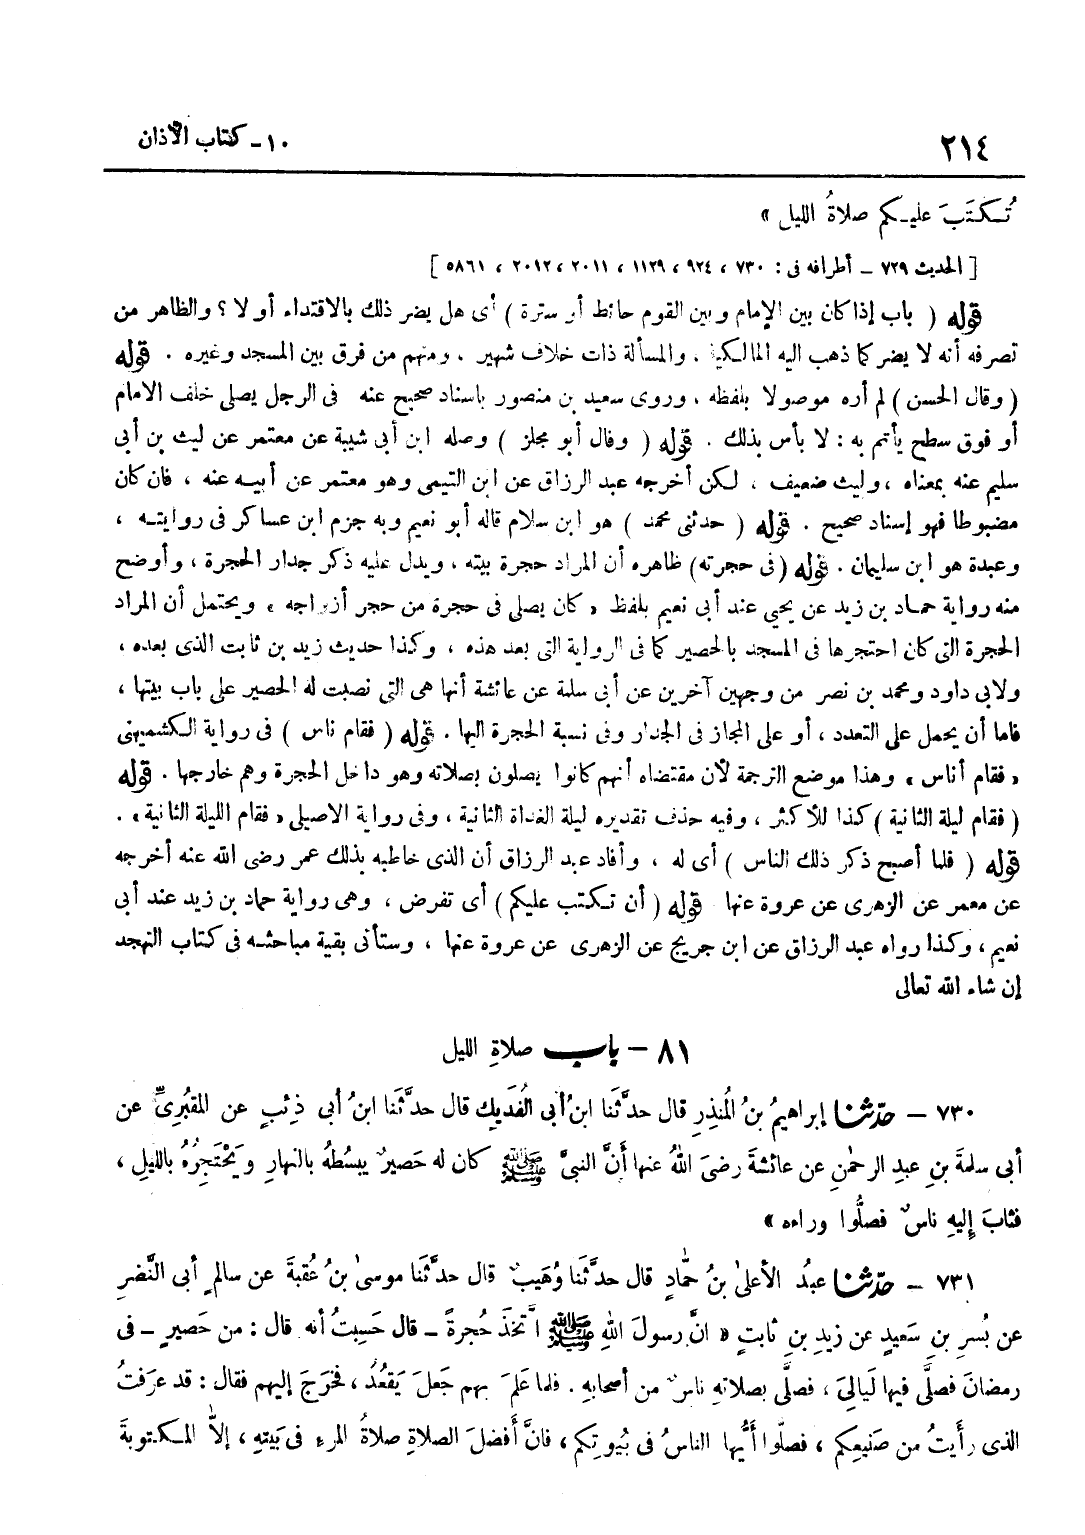 ٢١٤
١٠ - كتاب الأذان
تُكتَبَ عليكم صلاةُ الليل »
[ الحديث ٧٢٩ - أطرافه فى : ٧٣٠ ، ٩٢٤ ، ١١٢٩ ، ٢٠١١ ، ٢٠١٢ ، ٥٨٦١ ]
قوله ( باب إذا كان بين الإمام وبين القوم حائط أو سترة ) أى هل يضر ذلك بالاقتداء أو لا ؟ والظاهر من
تصرفه أنه لا يضر كما ذهب اليه المالكية ، والمسألة ذات خلاف شهير ، ومنهم من فرق بين المسجد وغيره . قوله
( وقال الحسن ) لم أره موصولا بلفظه ، وروى سعيد بن منصور باسناد صحيح عنه فى الرجل يصلى خلف الامام
أو فوق سطح يأتم به : لا بأس بذلك . قوله ( وقال أبو مجلز ) وصله ابن أبى شيبة عن معتمر عن ليث بن أبى
سليم عنه بمعناه ، وليث ضعيف ، لكن أخرجه عبد الرزاق عن ابن التيمى وهو معتمر عن أبيه عنه ، فان كان
مضبوطا فهو إسناد صحيح . قوله ( حدثنى محمد ) هو ابن سلام قاله أبو نعيم وبه جزم ابن عساكر فى روايته ،
وعبدة هو ابن سليمان . قوله ( فى حجرته ) ظاهره أن المراد حجرة بيته ، ويدل عليه ذكر جدار الحجرة ، وأوضح
منه رواية حماد بن زيد عن يحيى عند أبى نعيم بلفظ « كان يصلى فى حجرة من حجر أزواجه » ويحتمل أن المراد
الحجرة التى كان احتجرها فى المسجد بالحصير كما فى الرواية التى بعد هذه ، وكذا حديث زيد بن ثابت الذى بعده ،
ولابى داود ومحمد بن نصر من وجهين آخرين عن أبى سلمة عن عائشة أنها هى التى نصبت له الحصير على باب بيتها ،
فاما أن يحمل على التعدد ، أو على المجاز فى الجدار وفى نسبة الحجرة اليها . قوله ( فقام ناس ) فى رواية الكشميهنى
« فقام أناس » وهذا موضع الترجمة لأن مقتضاه أنهم كانوا يصلون بصلاته وهو داخل الحجرة وهم خارجها . قوله
( فقام ليلة الثانية ) كذا للأكثر ، وفيه حذف تقديره ليلة الغداة الثانية ، وفى رواية الاصيلى « فقام الليلة الثانية » .
قوله ( فلما أصبح ذكر ذلك الناس ) أى له ، وأفاد عبد الرزاق أن الذى خاطبه بذلك عمر رضى الله عنه أخرجه
عن معمر عن الزهرى عن عروة عنها قوله ( أن تكتب عليكم ) أى تفرض ، وهى رواية حماد بن زيد عند أبى
نعيم ، وكذا رواه عبد الرزاق عن ابن جريج عن الزهرى عن عروة عنها ، وستأتى بقية مباحثه فى كتاب التهجد
إن شاء الله تعالى
٨١ - باب صلاةِ الليل
٧٣٠ - حدّثنا إبراهيمُ بنُ المنذِرِ قال حدَّثَنا ابنُ أبى الفُدَيك قال حدَّثَنا ابنُ أبى ذِئبٍ عن المقبُرىِّ عن
أبى سلمةَ بنِ عبدِ الرحمٰنِ عن عائشةَ رضىَ اللهُ عنها أنَّ النبىَّ ﷺ كان له حَصيرٌ يبسُطهُ بالنهارِ ويَحْتَجِرُهُ بالليلِ ،
فثابَ إليهِ ناسٌ فصلُّوا وراءه »
٧٣١ - حدّثنا عبدُ الأعلىٰ بنُ حمَّادٍ قال حدَّثَنا وُهَيبٌ قال حدَّثَنا موسىٰ بنُ عُقبةَ عن سالمٍ أبى النَّضرِ
عن بُسرِ بنِ سَعيدٍ عن زيدِ بنِ ثابتٍ « انَّ رسولَ اللهِ ﷺ اتَّخذَ حُجرةً - قال حَسِبتُ أنه قال : من حَصيرٍ - فى
رمضانَ فصلَّى فيها لَيالىَ ، فصلَّى بصلاتهِ ناسٌ من أصحابهِ . فلما عَلمَ بهم جَعلَ يَقعُدُ ، فخرَجَ إليهم فقال : قد عرَفتُ
الذى رأَيتُ من صَنيعِكم ، فصلُّوا أيُّها الناسُ فى بُيوتِكم ، فانَّ أفضلَ الصلاةِ صلاةُ المرءِ فى بَيتهِ ، إلاَّ المكتوبةَ